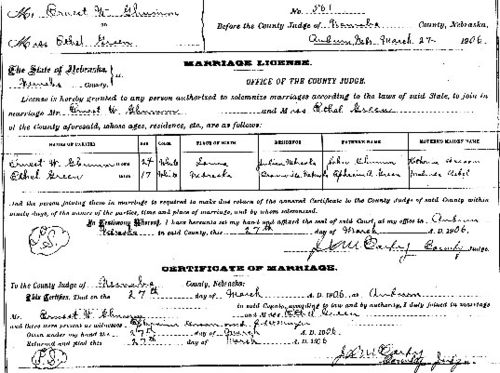 Mr. Ernest W.
to
Miss Ethel Green
No. 561
Before the County Judge of Nemaha County, Nebraska,
Auburn, Neb., March 27 1906.
MARRIAGE LICENSE.
The State of Nebraska,
Nemaha County,
OFFICE OF THE COUNTY JUDGE.
License is hereby granted to any person authorized to solemnize marriages according to the laws of said State, to join in
marriage Mr. Ernest W. and Miss Ethel Green
of the County aforesaid, whose ages, residence, etc., are as follows:
NAMES OF PARTIES AGE COLOR PLACE OF BIRTH RESIDENCE FATHER'S NAME MOTHER'S MAIDEN NAME
Ernest W. 24 White Julian, Nebraska John
Ethel Green 17 White Nebraska Green
And the person joining them in marriage is required to make due return of the annexed Certificate to the County Judge of said County within
ninety days, of the names of the parties, time and place of marriage, and by whom solemnized.
In Testimony Whereof, I have hereunto set my hand and affixed the seal of said Court, at my office in Auburn
Nebraska in said County, this 27th day of March A. D. 1906.
County Judge.
CERTIFICATE OF MARRIAGE.
To the County Judge of Nemaha County, Nebraska:
This Certifies, That on the 27th day of March A. D. 1906, at Auburn
in said County, according to law and by authority, I duly joined in marriage
Mr. Ernest W. and Miss Ethel Green
and there were present as witnesses
Given under my hand the 27th day of March A. D. 1906.
Returned and filed this 27th day of March A. D. 1906
County Judge